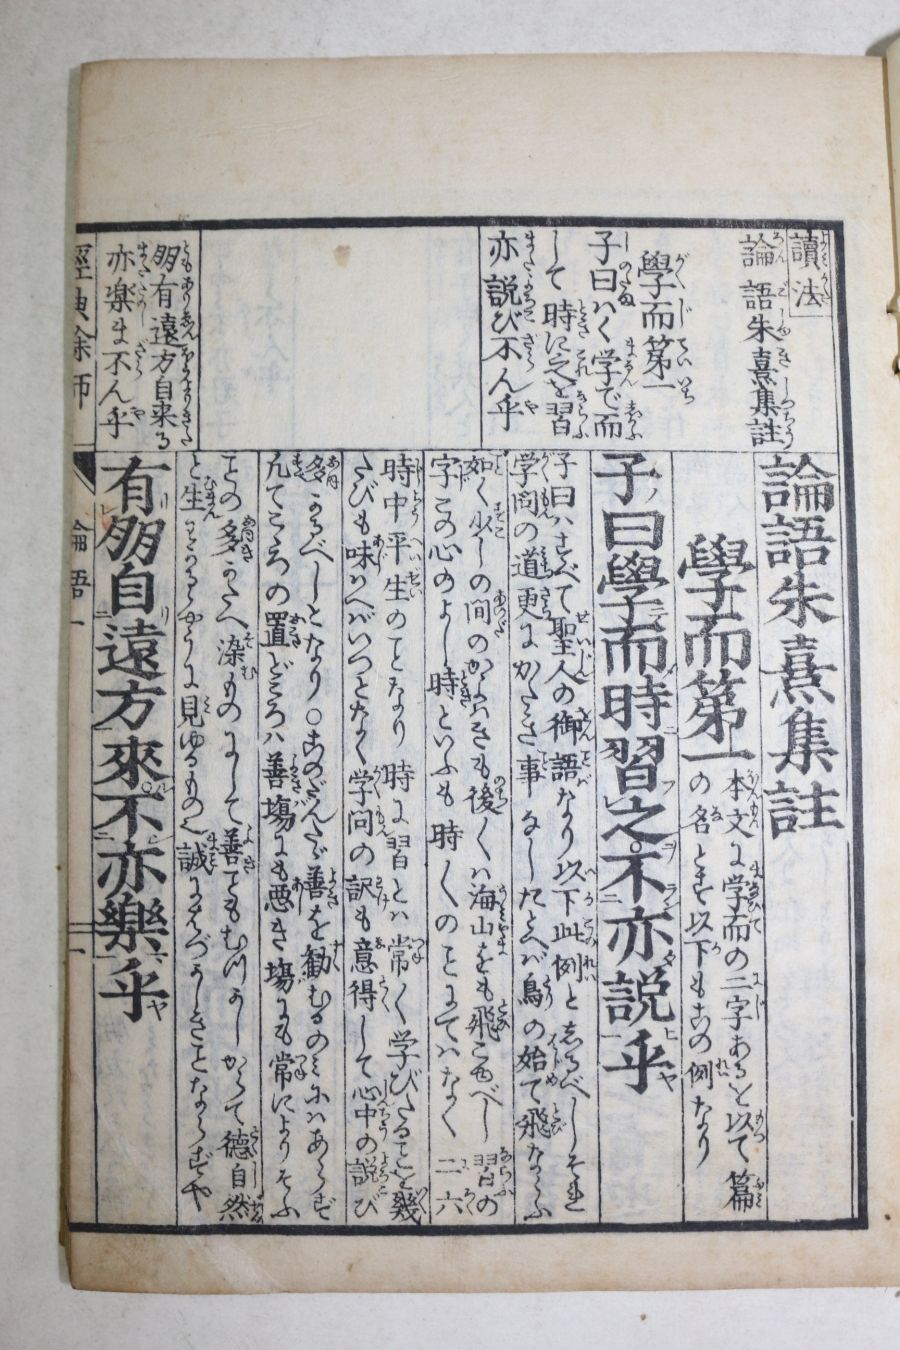 讀法
論語朱熹集註
學而第一
子曰ハく学で而
して時に之を習
亦説び不ん乎
朋有遠方自来る
亦楽ま不ん乎
論語朱熹集註
學而第一
本文に学而の二字あるを以て篇
の名とす以下もこの例なり
子曰學而時習之不亦説乎
子曰ハすべて聖人の御語なり以下此例としるべしそれ
学問の道更にかたき事なしたとへバ鳥の始て飛ならふ
如く少しの間のかよハきも後〱ハ海山をも飛こゆべし習の
字この心のよし時といふも時〱のことにてハなく二六
時中平生のことなり時に習とハ常〱学びたることを幾
たびも味ハへバいつとなく学問の訳も意得して心中の説び
多かるべしとなり〇このだんたゞ善を勧むるのミにハあらず
凡てこゝろの置どころハ善塲にも悪き塲にも常によりそふ
との多きへ染ものにして善ともむづかしからて徳自然
と生ずるやうに見ゆるもの也誠にはづかしきことならずや
有朋自遠方來不亦樂乎
經典余師
論語一
一